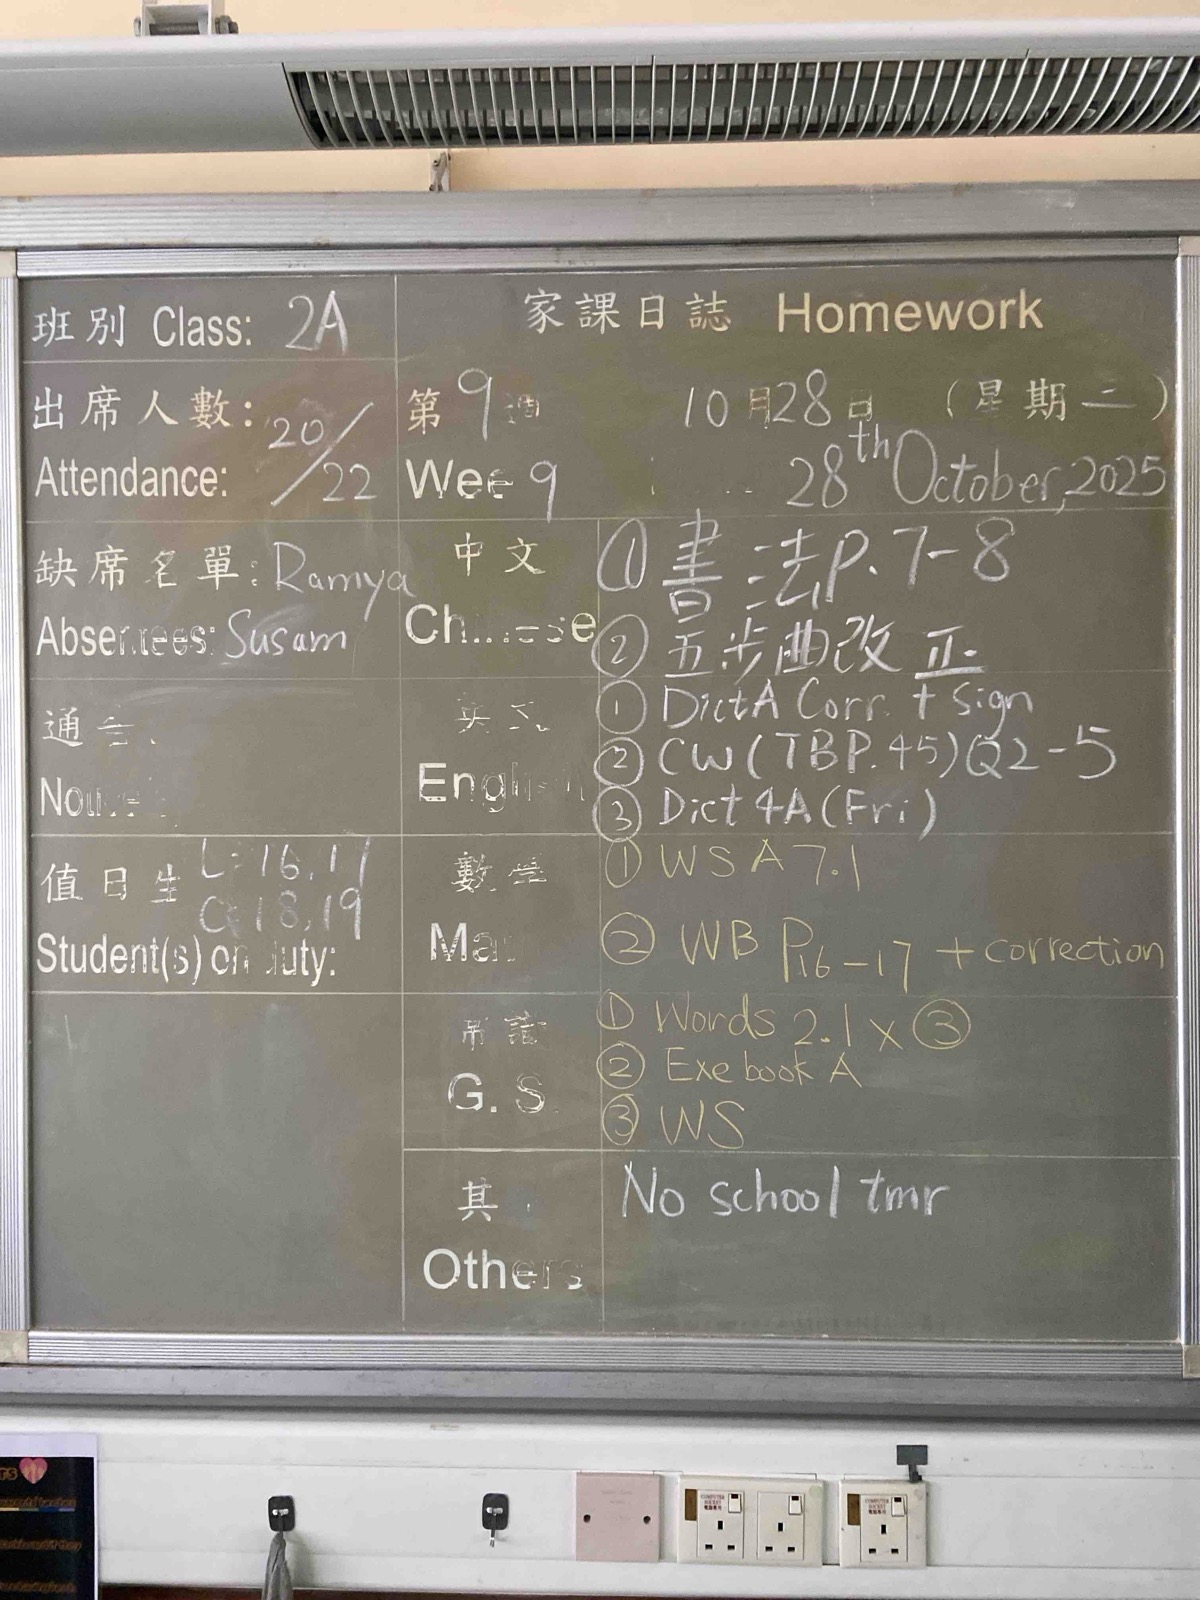 班別 Class: 2A
家課日誌 Homework
出席人數: 20/22
Attendance:
第9週 10月28日 (星期二)
Wee 9 28th October, 2025
缺席名單: Ramya
Absentees: Susam
中文
Chinese
① 書法P.7-8
② 五步曲改正
通告
英文
English
① DictA Corr. + Sign
② CW (TBP.45) Q2-5
③ Dict 4A (Fri)
值日生 L: 16,17
C: 18,19
Student(s) on duty:
數學
Ma
① WS A 7.1
② WB P16-17 + correction
G. S.
① Words 2.1 x ③
② Exe book A
③ WS
其
Others
No school tmr
COMPUTER SOCKET
COMPUTER SOCKET